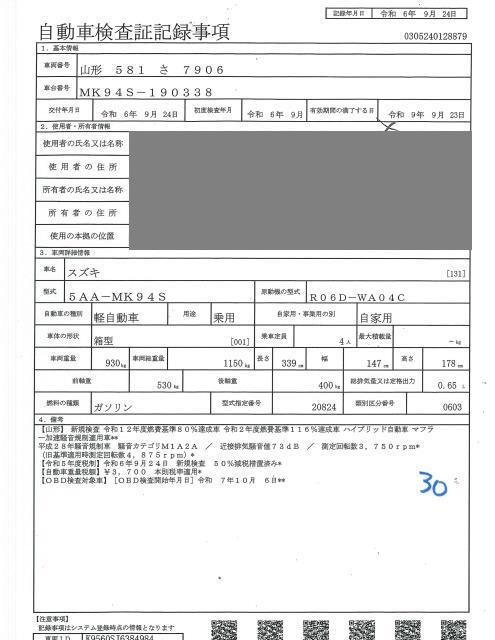 記録年月日 令和 6年 9月 24日
自動車検査証記録事項
0305240128879
1. 基本情報
車両番号 山形 581 さ 7906
車台番号 MK94S-190338
交付年月日 令和 6年 9月 24日 初度検査年月 令和 6年 9月 有効期間の満了する日 令和 9年 9月 23日
2. 使用者・所有者情報
使用者の氏名又は名称
使用者の住所
所有者の氏名又は名称
所有者の住所
使用の本拠の位置
3. 車両詳細情報
車名 スズキ [131]
型式 5AA-MK94S 原動機の型式 R06D-WA04C
自動車の種別 軽自動車 用途 乗用 自家用・事業用の別 自家用
車体の形状 箱型 [001] 乗車定員 4人 最大積載量 -kg
車両重量 930kg 車両総重量 1150kg 長さ 339cm 幅 147cm 高さ 178cm
前軸重 530kg 後軸重 400kg 総排気量又は定格出力 0.65 L
燃料の種類 ガソリン 型式指定番号 20824 類別区分番号 0603
4. 備考
【山形】 新規検査 令和12年度燃費基準80%達成車 令和2年度燃費基準116%達成車 ハイブリッド自動車 マフラ
ー加速騒音規制適用車**
平成28年騒音規制車 騒音カテゴリM1A2A / 近接排気騒音値73dB / 測定回転数3,750rpm*
(旧基準適用時測定回転数4,875rpm)*
【令和5年度税制】令和6年9月24日 新規検査 50%減税措置済み*
【自動車重量税額】¥3,700 本則税率適用*
【OBD検査対象車】 [OBD検査開始年月日] 令和 7年10月 6日**
30
【注意事項】
記録事項はシステム登録時点の情報となります
車両ID K9560ST6384984